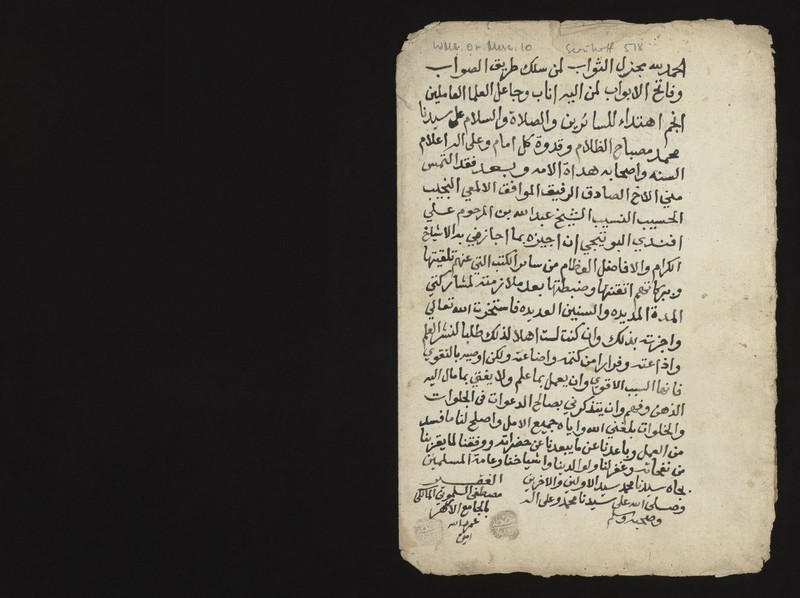 WMS. Or. Misc. 10
518
الحمد لله مجزل الثواب لمن سلك طريق الصواب
وفاتح الابواب لمن اليه اناب وجاعل العلما العاملين
انجم اهتداء للسائرين والصلاة والسلام على سيدنا
محمد مصباح الظلام وقدوة كل امام وعلى اله اعلام
السنه واصحابه هداة الامه وبعد فقد التمس
مني الاخ الصادق الرفيق الموافق الالمعي النجيب
الحسيب النسيب الشيخ عبد الله بن المرحوم علي
افندي البوتيجي ان اجيزه بما اجازني به الاشياخ
الكرام والافاضل العظام من سائر الكتب التي عنهم تلقيتها
وببركاتهم اتقنتها وضبطتها بعد ملازمته لمشاركتي
المدة المديده والسنين العديده فاستخرت الله تعالى
واجزته بذلك وان كنت لست اهلا لذلك طلبا لنشر العلم
واذاعته وفرارا من كتمه واضاعته ولكن اوصيه بالتقوى
فانها السبب الاقوى وان يعمل بما علم ولا يفتي بما مال اليه
الذهن وفهم وان يتذكرني بصالح الدعوات في الجلوات
والخلوات بلغني الله واياه جميع الامل واصلح لنا ما فسد
من العمل وباعدنا عن ما يبعدنا عن حضراته ووفقنا لما يقربنا
من نفحاته وغفر لنا ولوالدينا واشياخنا وعامة المسلمين
بجاه سيدنا محمد سيد الاولين والاخرين
وصلى الله على سيدنا محمد وعلى اله
وصحبه وسلم
الفقير
مصطفى السلموني المالكي
بالجامع الازهر
عمره الله
امين